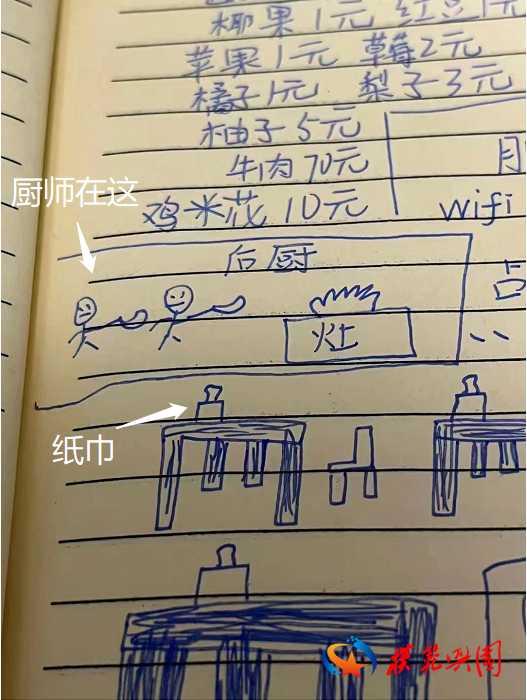 椰果1元 红豆1元
苹果1元 草莓2元
橘子1元 梨子3元
柚子5元
牛肉70元
鸡米花10元 wifi
厨师在这
后厨
灶
纸巾